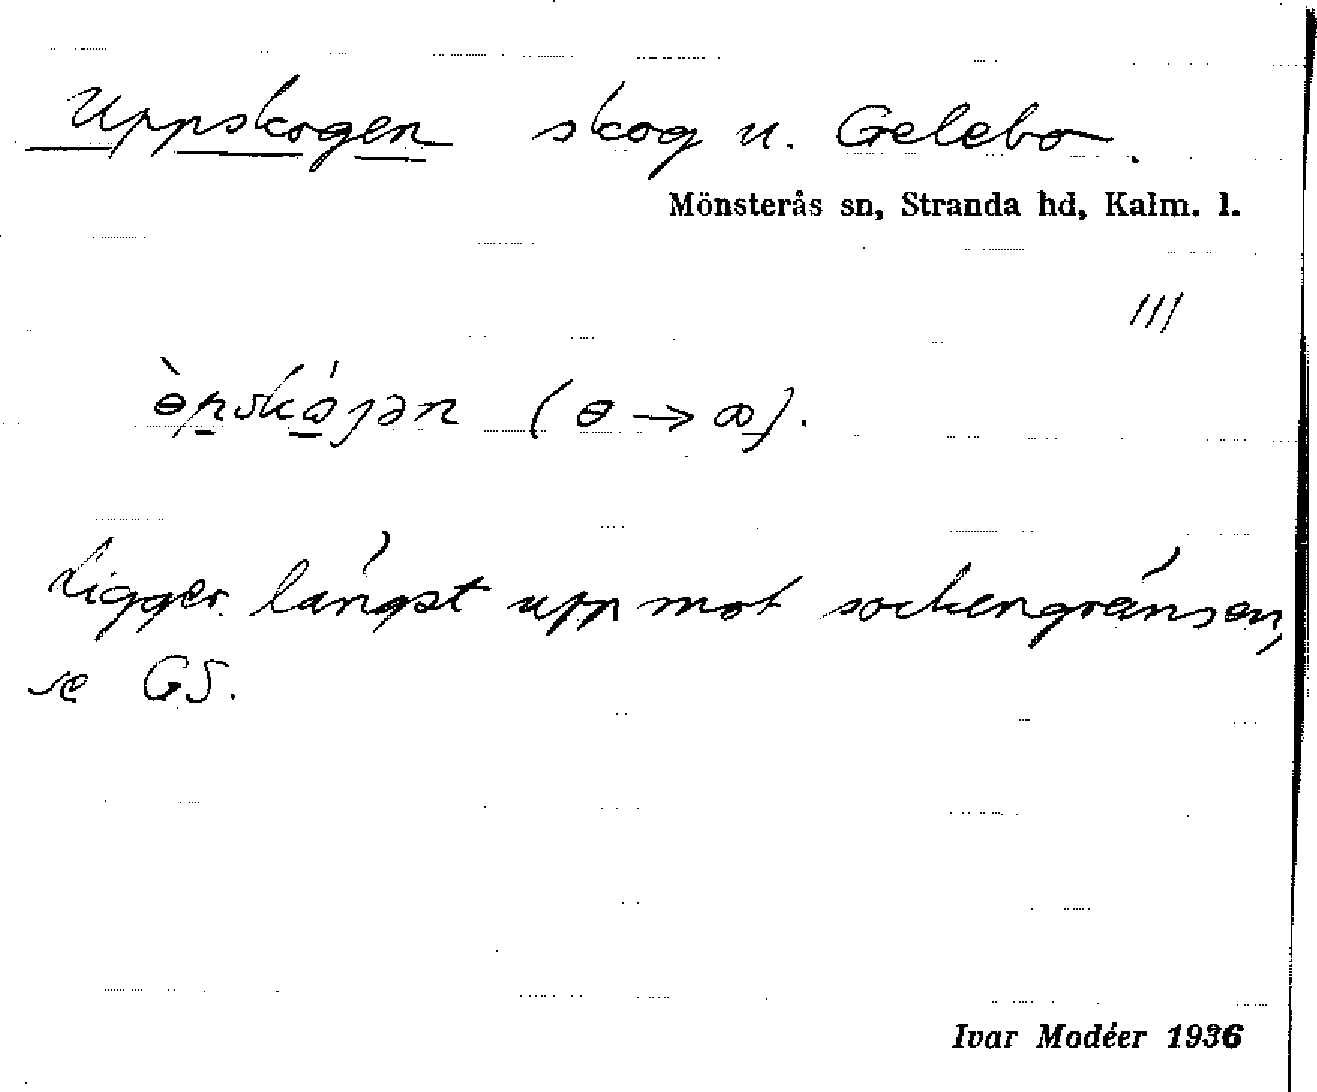 Uppskogen skog u. Gelebo.
Mönsterås sn, Stranda hd, Kalm. l.
III
Ligger längst upp mot sockengränsen,
se GS.
Ivar Modéer 1936